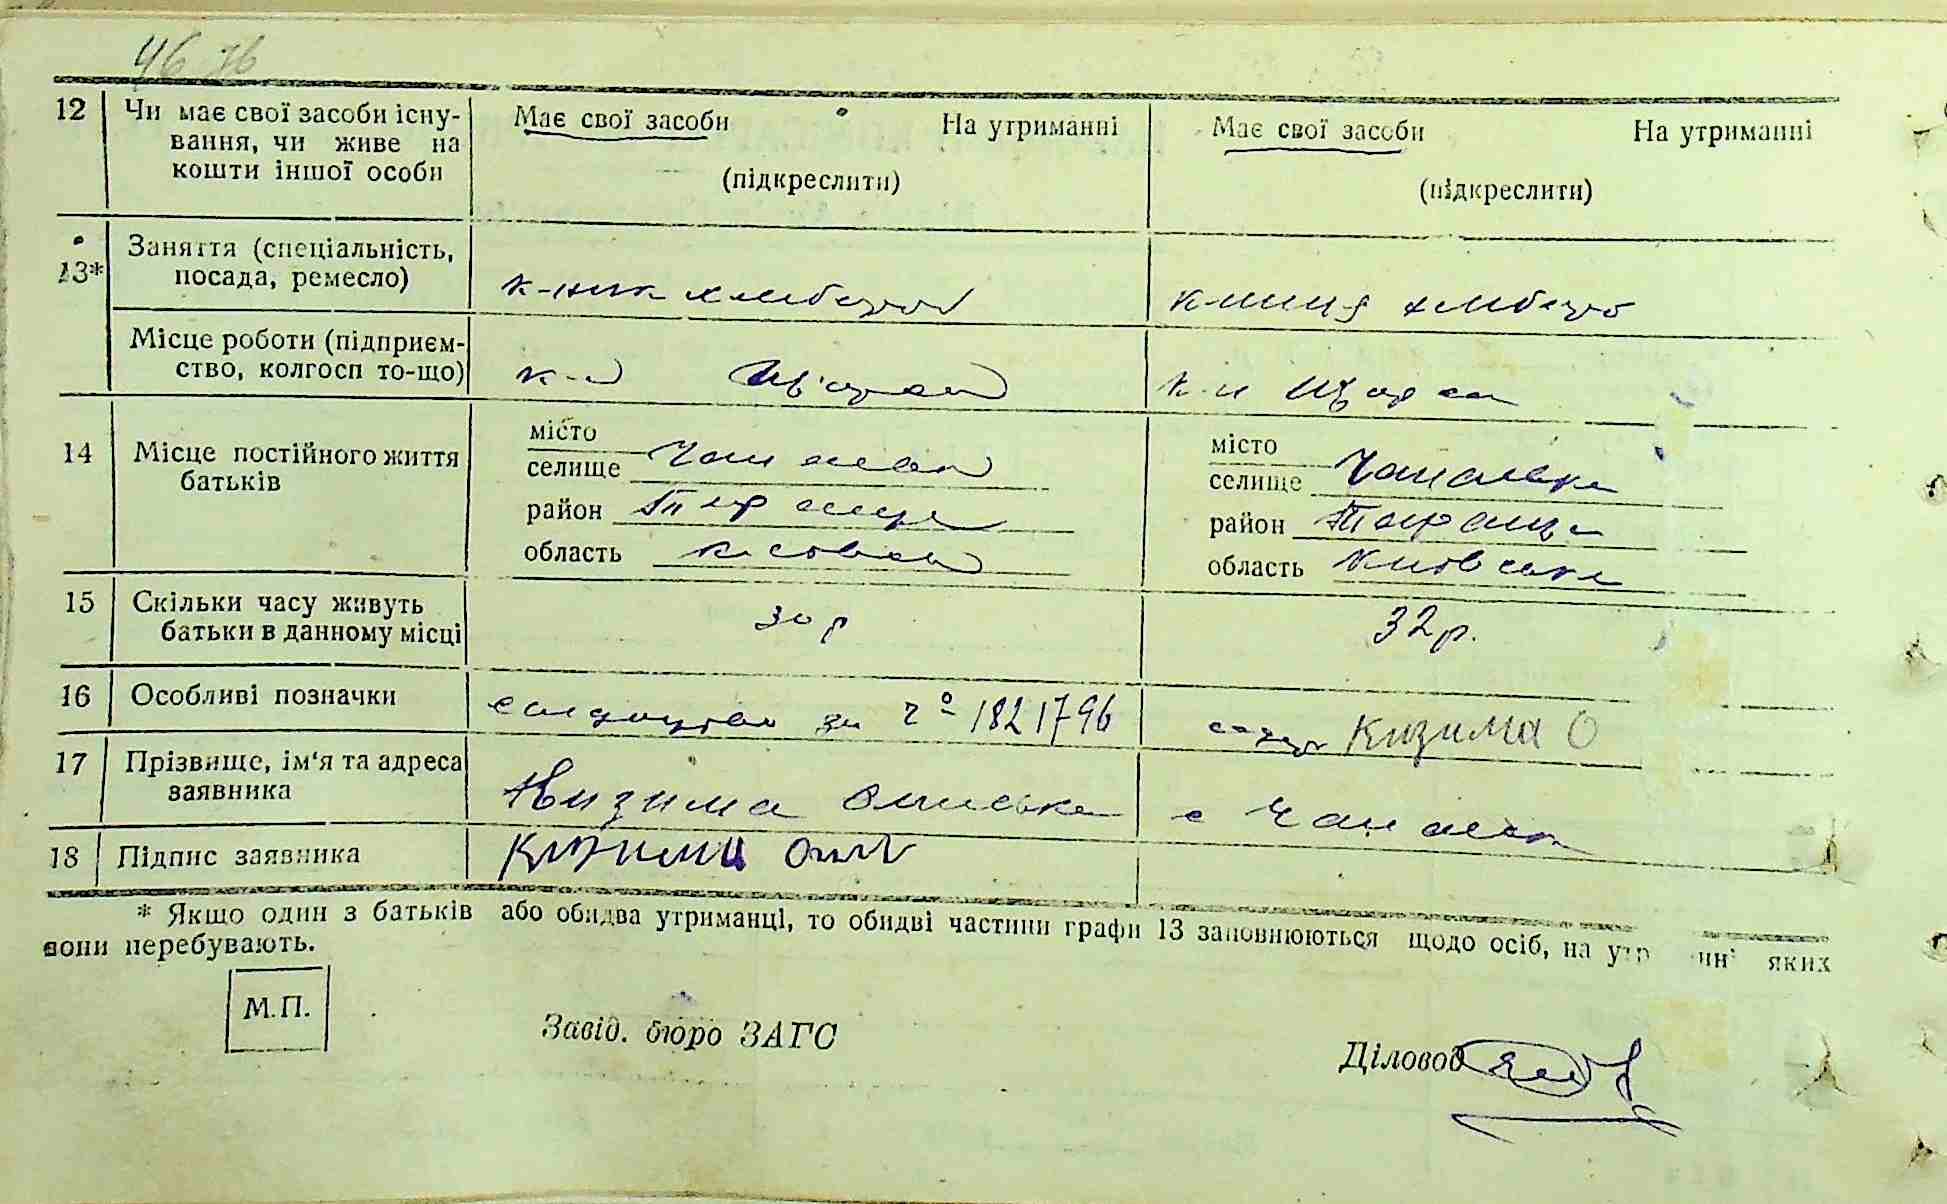 46 зв
12 Чи має свої засоби існу-
вання, чи живе на
кошти іншої особи
Має свої засоби На утриманні
(підкреслити)
Має свої засоби На утриманні
(підкреслити)
13* Заняття (спеціальність,
посада, ремесло)
к-ник хлібороб
к-ниця хлібороб
Місце роботи (підприєм-
ство, колгосп то-що)
к-п Щорса
к-п Щорса
14 Місце постійного життя
батьків
місто
селище
район Тараща
область Київська
місто
селище
район Тараща
область Київська
15 Скільки часу живуть
батьки в данному місці
30 р
32 р.
16 Особливі позначки
за № 1821796
Кизима О
17 Прізвище, ім'я та адреса
заявника
Кизима с
18 Підпис заявника
Кизима
* Якщо один з батьків або обидва утриманці, то обидві частини графи 13 заповнюються щодо осіб, на яких
вони перебувають.
М.П.
Завід. бюро ЗАГС
Діловод